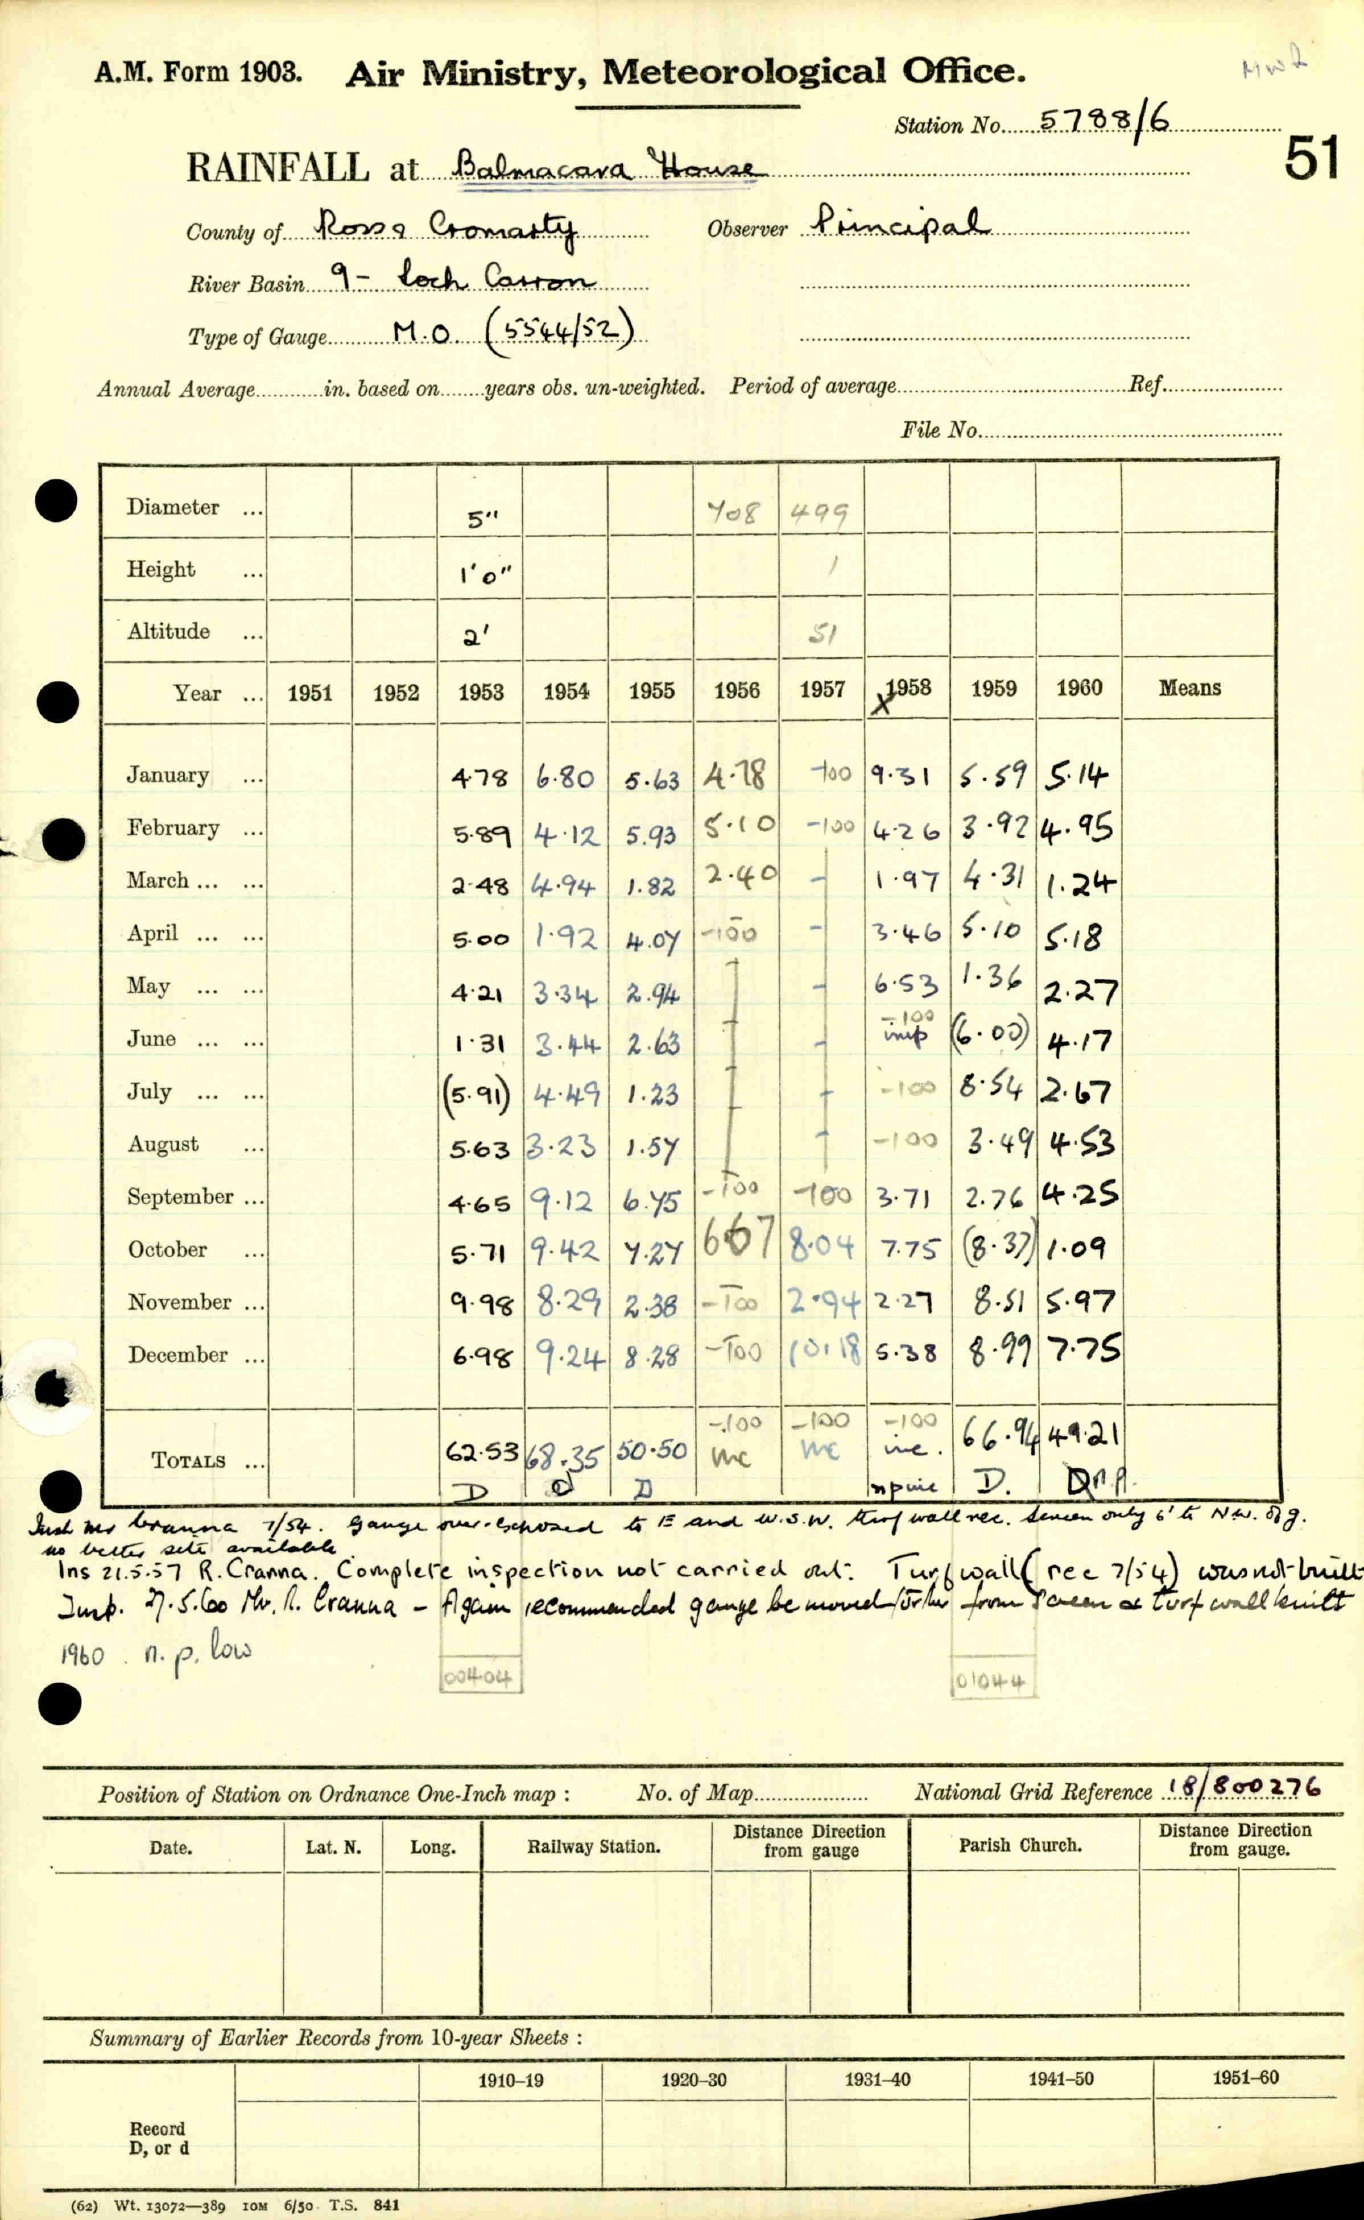 A.M. Form 1903. Air Ministry, Meteorological Office.
Station No. 5788/6
51
RAINFALL at Balmacara House
County of Ross & Cromarty Observer Principal
River Basin 9 - Loch Carron
Type of Gauge M.O. (5544/52)
Annual Average in. based on years obs. un-weighted. Period of average Ref.
File No.
Diameter ... 5" 708 499
Height ... 1'0" 1
Altitude ... 2' 51
Year ... 1951 1952 1953 1954 1955 1956 1957 X 1958 1959 1960 Means
January ... 4.78 6.80 5.63 4.78 -100 9.31 5.59 5.14
February ... 5.89 4.12 5.93 5.10 -100 4.26 3.92 4.95
March ... ... 2.48 4.94 1.82 2.40 - 1.97 4.31 1.24
April ... ... 5.00 1.92 4.07 -100 - 3.46 5.10 5.18
May ... ... 4.21 3.34 2.94 - - 6.53 1.36 2.27
June ... ... 1.31 3.44 2.63 - - -100 imp (6.00) 4.17
July ... ... (5.91) 4.49 1.23 - - -100 8.54 2.67
August ... 5.63 3.23 1.57 - - -100 3.49 4.53
September ... 4.65 9.12 6.75 -100 -100 3.71 2.76 4.25
October ... 5.71 9.42 7.27 6.67 8.04 7.75 (8.37) 1.09
November ... 9.98 8.29 2.38 -100 2.94 2.27 8.51 5.97
December ... 6.98 9.24 8.28 -100 10.18 5.38 8.99 7.75
-100 -100 -100
TOTALS ... 62.53 68.35 50.50 inc inc inc. 66.94 49.21
D d D D.
Insp Mr Cranna 7/54. Gauge over-exposed to E and W.S.W. turf wall rec. Screen only 6' to N.W. of g.
no better site available
Ins 21.5.57 R. Cranna. Complete inspection not carried out. Turf wall (rec 7/54) was not built
Insp. 27.5.60 Mr. R. Cranna - Again recommended gauge be moved further from Screen & turf wall built
1960. n.p. low
00404 01044
Position of Station on Ordnance One-Inch map : No. of Map National Grid Reference 18/800276
Date. Lat. N. Long. Railway Station. Distance Direction from gauge Parish Church. Distance Direction from gauge.
Summary of Earlier Records from 10-year Sheets :
1910–19 1920–30 1931–40 1941–50 1951–60
Record
D, or d
(62) Wt. 13072—389 10M 6/50 T.S. 841